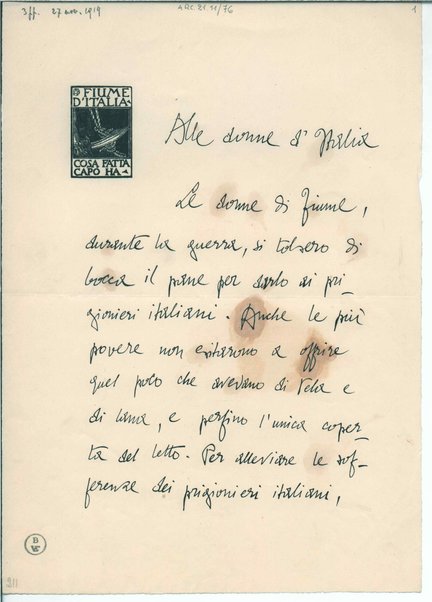 3ff. 27 nov. 1919
ARC. 21 11/76
1
FIUME
D'ITALIA
COSA FATTA
CAPO HA
Alle donne d'Italia
Le donne di Fiume,
durante la guerra, si tolsero di
bocca il pane per darlo ai pri-
gionieri italiani. Anche le più
povere non esitarono a offrire
quel poco che avevano di tela e
di lana, e perfino l'unica coper-
ta del letto. Per alleviare le sof-
ferenze dei prigionieri italiani,
B
211